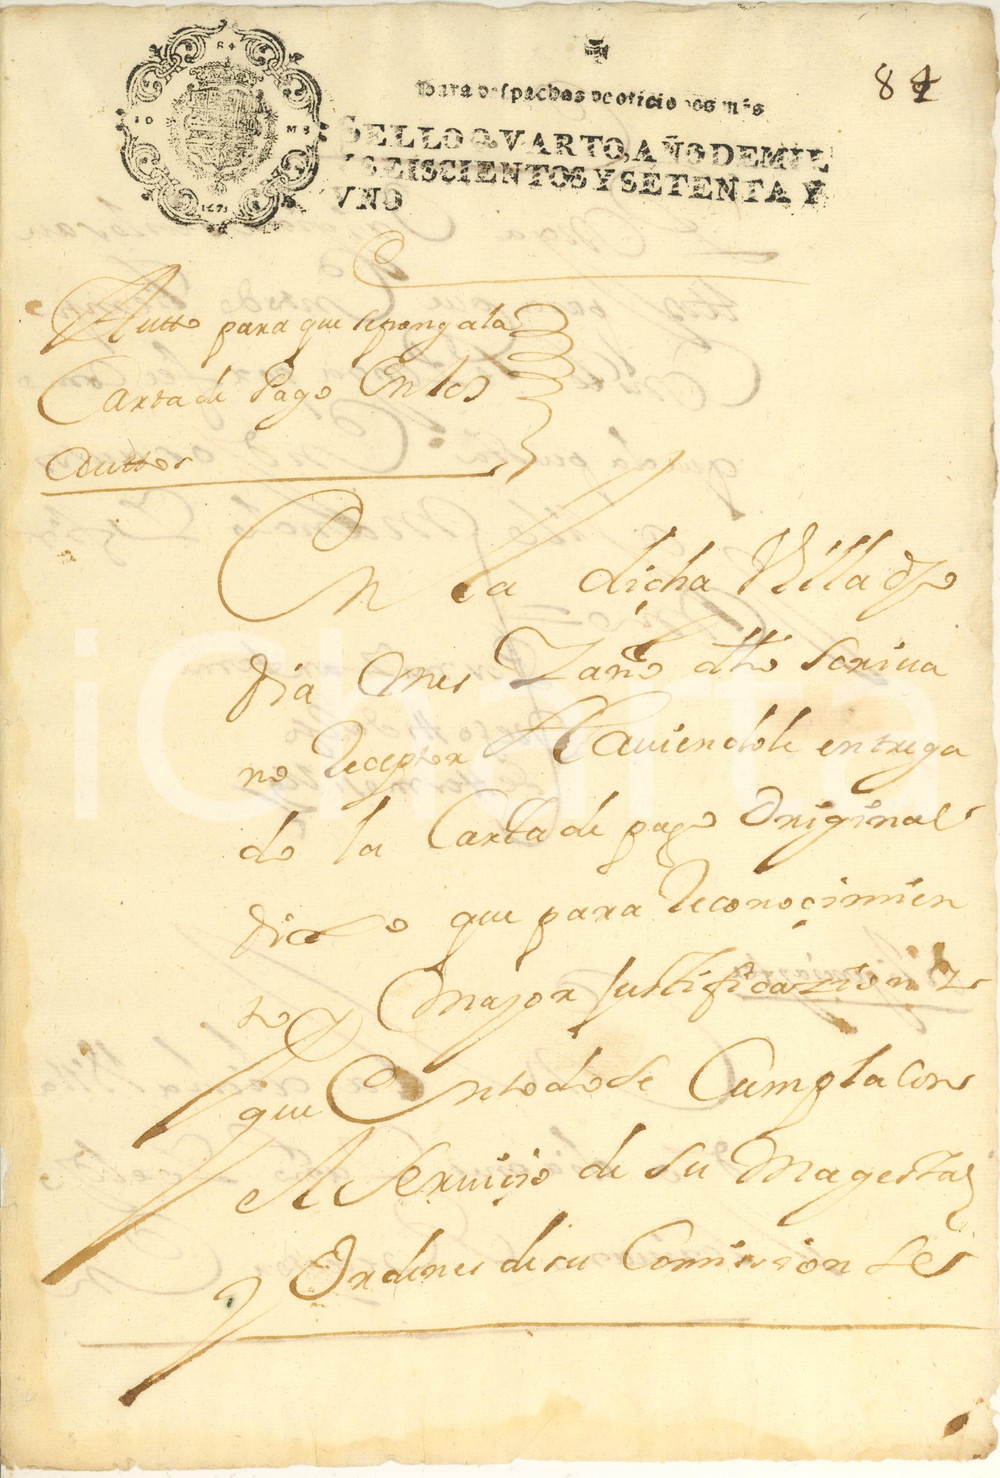 84
Para despachos de oficio dos mrs
SELLO QVARTO, AÑO DE MIL
Y SEISCIENTOS Y SETENTA Y
VNO
Autto para que se ponga la
Carta de Pago En los
Auttos
En la dicha Villa dho
dia mes Y año dho scriua
no Receptor Hauiendole entrega
do la Carta de pago Original
dixo que para Reconoçimien
to Y Major Justificazion Y
que En todo se Cumpla con
el Seruiçio de Su Magestad
Y Ordenes de su Comission Se
iCharta